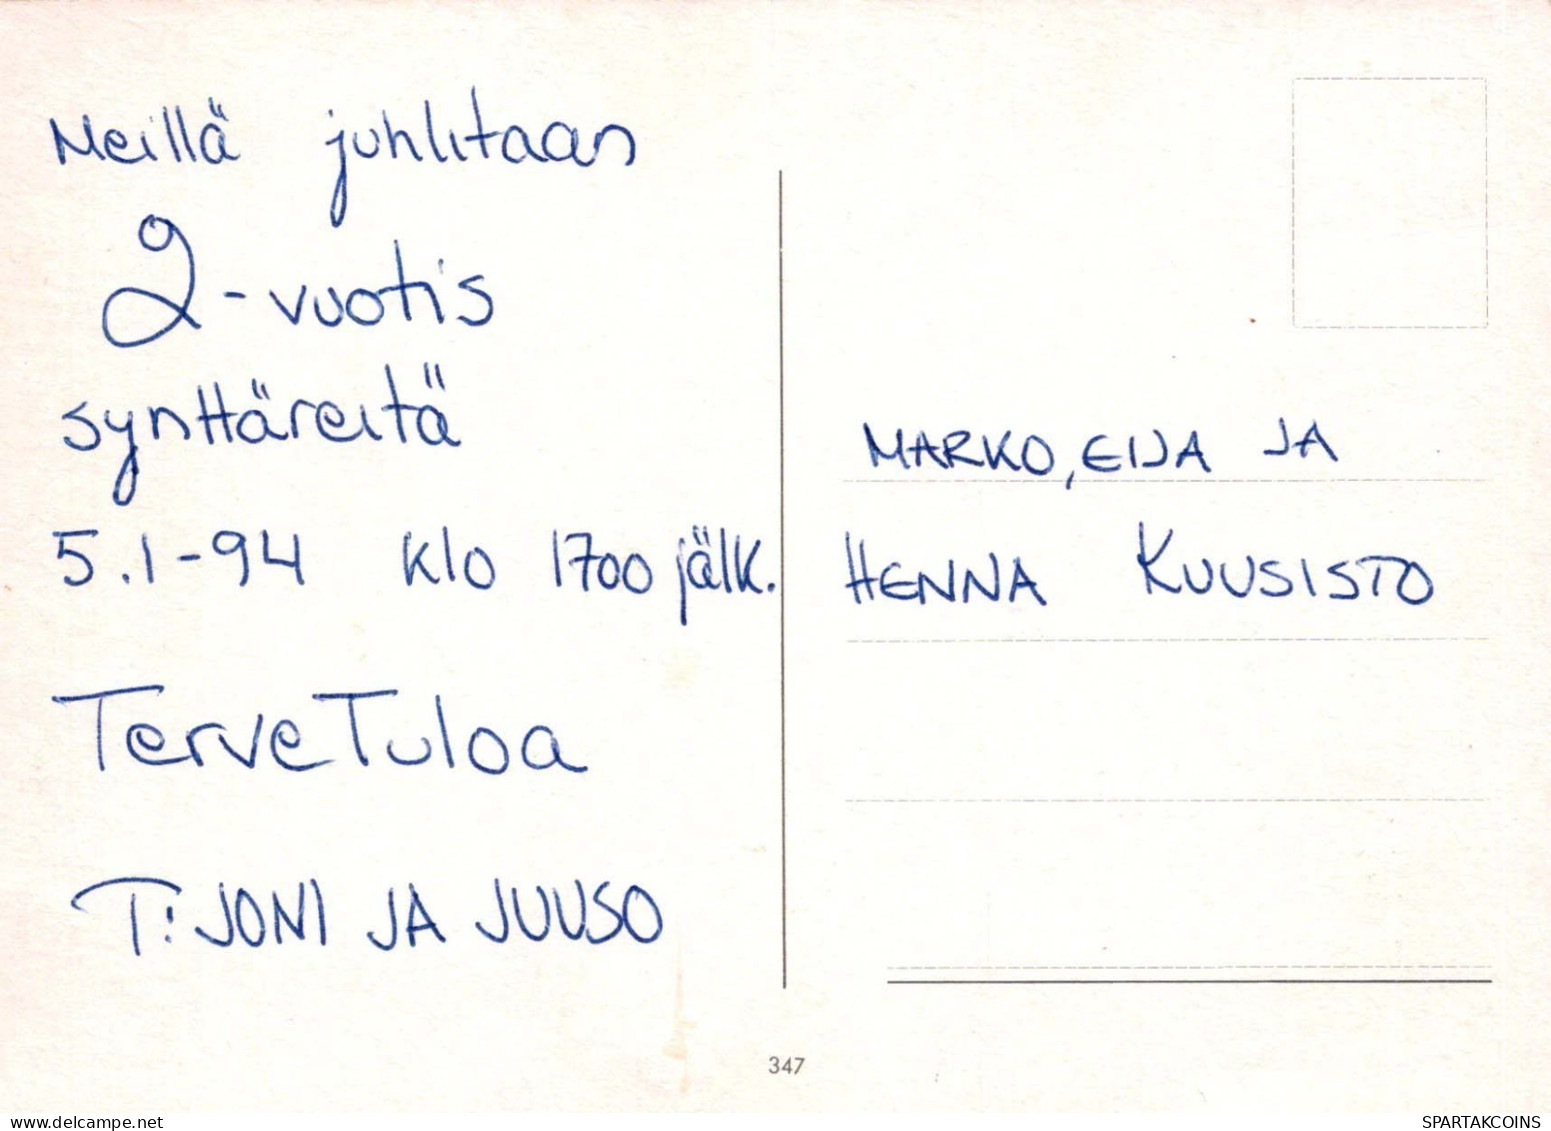 Meillä juhlitaan
2-vuotis
synttäreitä
5.1-94 klo 1700 jälk.
TerveTuloa
T: JONI JA JUUSO
MARKO, EIJA JA
HENNA KUUSISTO
347
delcampe.net
SPARTAKCOINS